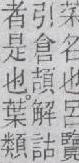 名也呂覽
引倉頡解詁
者是也葉類